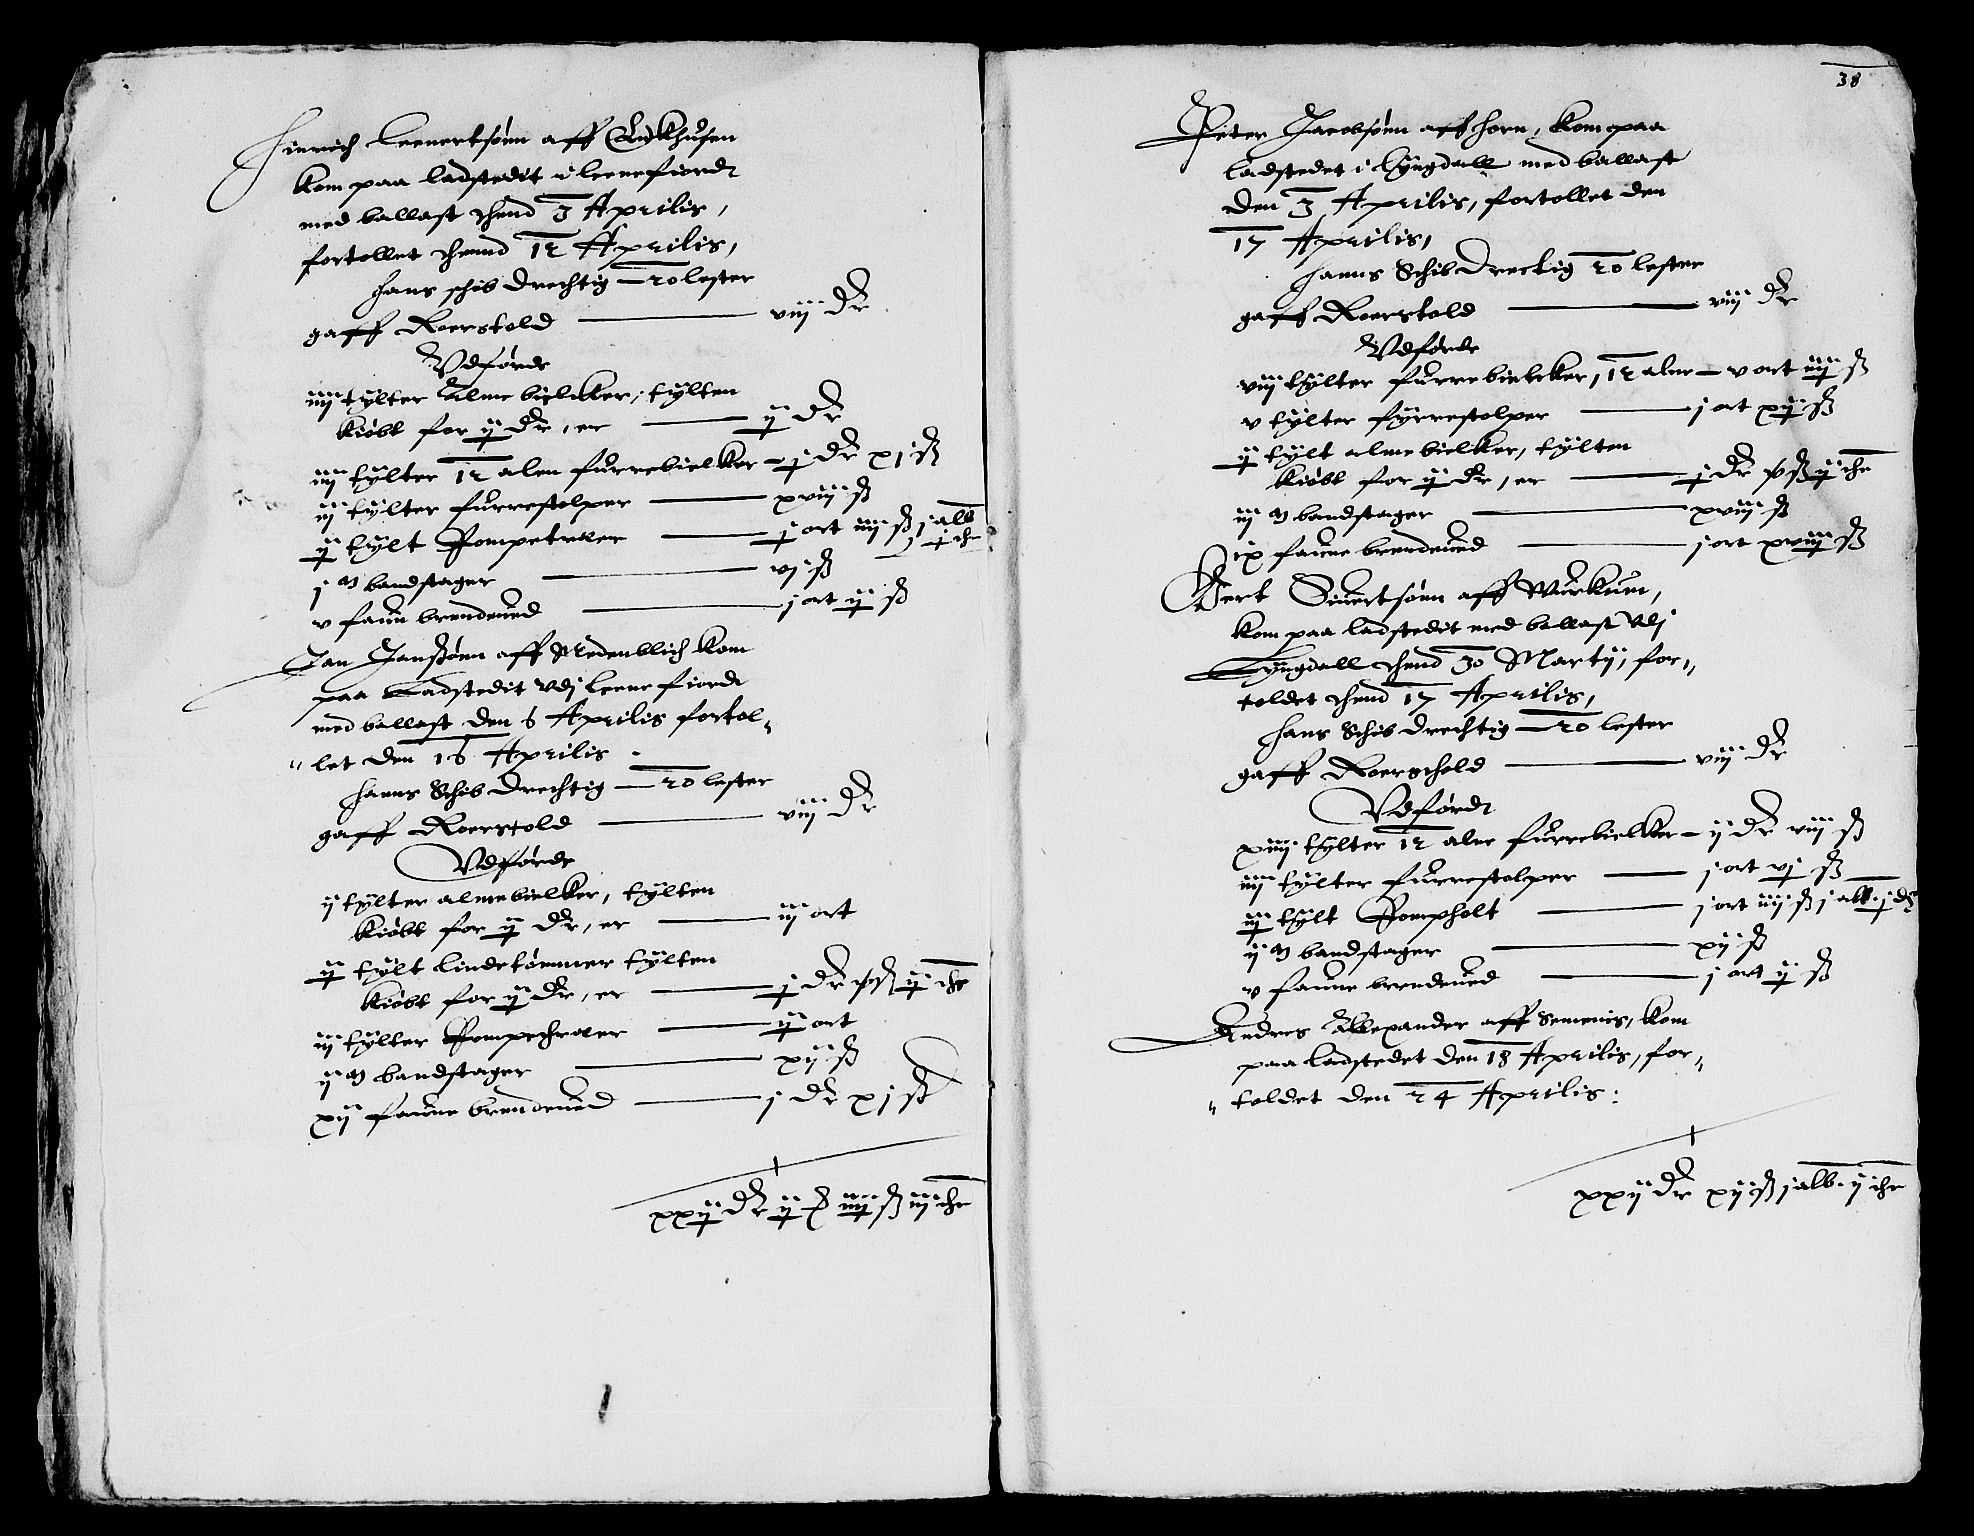 Hinrich Leenertsønn aff Enckhusen
kom paa ladstedit i leenefiordt
med ballast thend 3 Aprilis,
fortollet thennd 12 Aprilis,
Hans schib drechtig 20 lester
gaff Roerstold viij dr
Vdførde
iiij tylter Alme bielcker, tylten
kiøbt for ij dr, er ij dr
iiij tylter 12 alen furrebielcker j dr xj ß
iij tylter furrestolper xviij ß
ij tylt Pompetræer j ort iiij ß j alb j che
j M bandstager vj ß
v faun brendeued j ort ij ß
Jan Janßønn aff Medenblich kom
paa Ladstedit vdj leene fiordt
med ballast den 6 Aprilis fortol-
let den 16 Aprilis
Hanns Schib drechtig 20 lester
gaff Roerstold viij dr
Vdførde
ij tylter almebielker, tylten
kiøbt for ij dr, er iij ort
ij tylt lindetømmer tylten
kiøbt for ij dr, er j dr ß ij che
iij tylter Pompethræer ij ort
ij M bandstager xij ß
xij faune brendeued j dr xj ß
xxij dr ij iiij ß iij che
38
Peter Jacobsønn aff Horn, kom paa
ladstedet i Lyngdall med ballast
den 3 Aprilis, fortollet den
17 Aprilis,
Hanns Schib drectig 20 lester
gaff Roerstold viij dr
Vdførde
viij tylter furrebielcker, 12 alne v ort iiij ß
v tylter fyrrestolper j ort xij ß
ij tylt almebielker, tylten
kiøbt for ij dr, er j dr ß ij che
iij M bandstager xviij ß
ix faune brendeued j ort xviij ß
Gert Siuertsønn aff Wurkum,
kom paa ladstedit med ballast vdj
Lyngdall thend 30 Martij, for-
toldet thend 17 Aprilis,
Hans Schib drechtig 20 lester
gaff Roerschold viij dr
Vdførdt
xiiij tylter 12 alne furrebielcker ij dr viij ß
iiij tylter furrestolper j ort vj ß
iij tylt Pompholt j ort iiij ß j alb. j d
ij M bandstager xij ß
v faune brendeued j ort ij ß
Andres Allexander aff Semenis, kom
paa ladstedet den 18 Aprilis, for-
toldet den 24 Aprilis:
xxij dr xij ß j alb. ij che